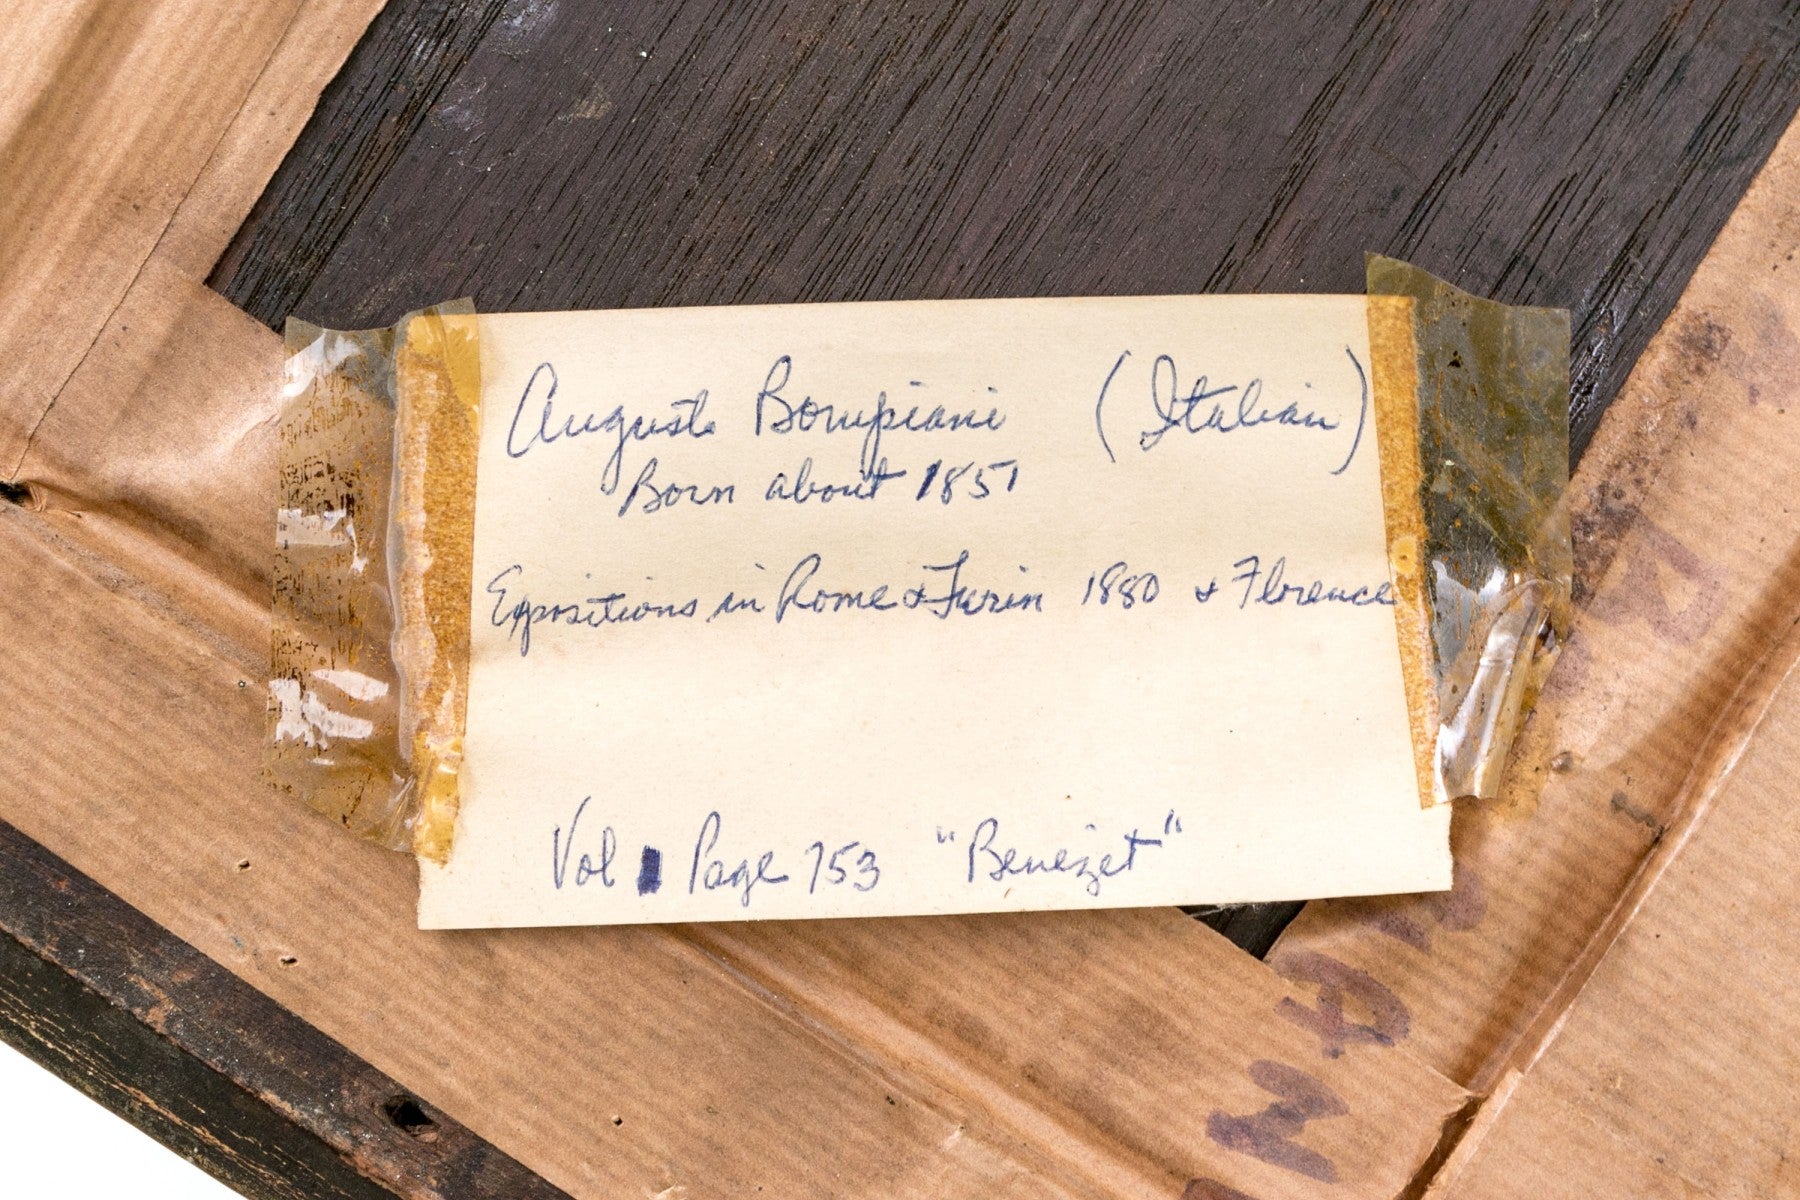 Auguste Bompiani (Italian)
Born about 1851
Expositions in Rome & Turin 1880 & Florence
Vol 1 Page 753 "Benezet"